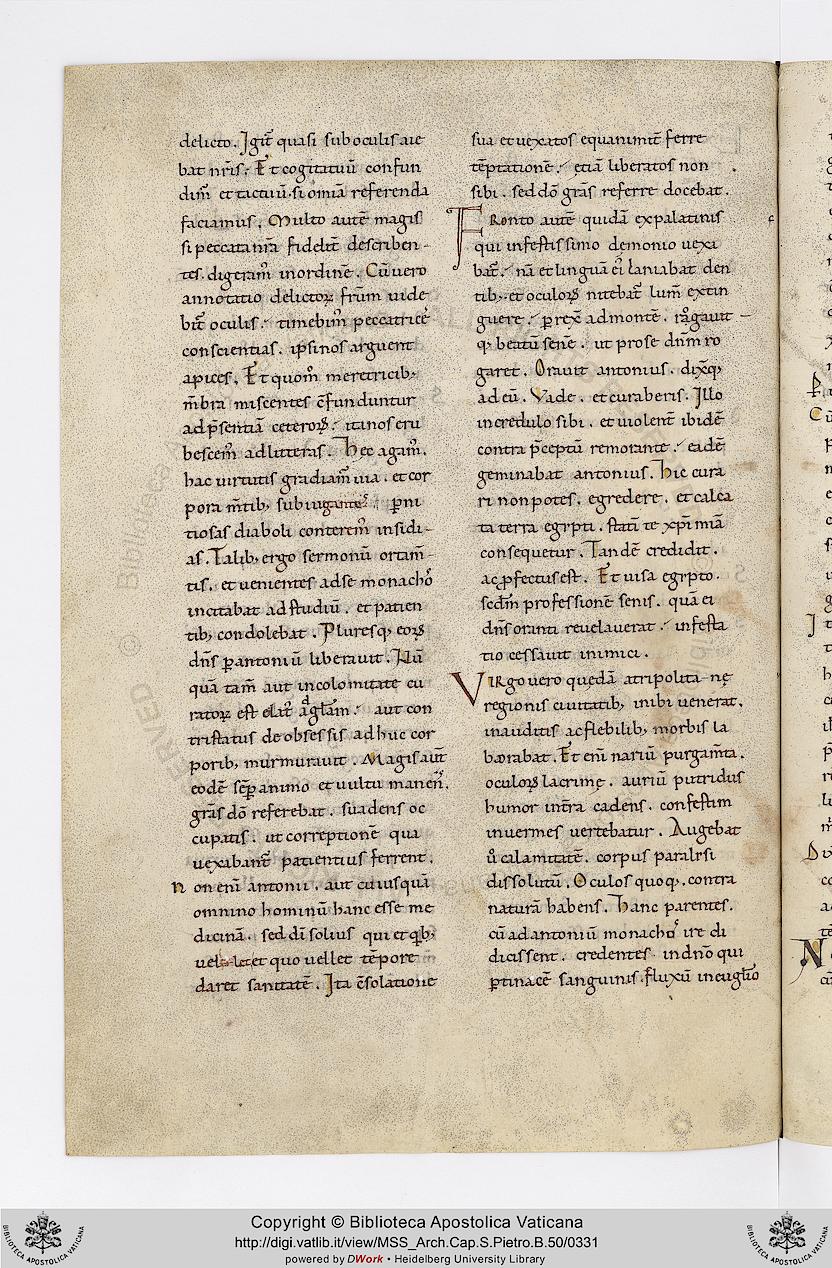 delicto. Igit̄ quasi sub oculis aie
bat nr̄is. Et cogitatuū confun
dim̄ et tactuū. si om̄ia referenda
faciamus. Multo autē magis
si peccata nr̄a fidelit̄ describen-
tes. digeram̄ in ordinē. Cū uero
annotatio delictoꝝ fr̄um uide
bit̄ oculis. timebim̄ peccatricē
conscientias. ipsi nos arguent
apices. Et quom̄ meretricib;
m̄bra miscentes c̄funduntur
ad p̄sentiā ceteroꝝ. ita nos eru
bescem̄ ad litteras. Hec agam̄.
hac uirtutis gradiam̄ uia. et cor
pora m̄tib; subiugantes. p̱ni
tiosas diaboli conterem̄ insidi-
as. Talib; ergo sermonū ortam̄-
tis. et uenientes ad se monachō
incitabat ad studiū. et patien
tib; condolebat. Pluresq; eoꝝ
dn̄s p̱ antoniū liberauit. Nū
quā tam̄ aut incolomitate cu
ratoꝝ est elat᾿ ad gl̄am. aut con
tristatus de obsessis adhuc cor
porib; murmurauit. Magis aut̄
eodē sēp̱ animo et uultu manen᾿.
grās dō referebat. suadens oc
cupatis. ut correptionē qua
uexabant̄ patientius ferrent.
non eni᾿ antonii. aut cuiusquā
omnino hominū hanc esse me
dicinā. sed dī solius qui et qb;
uel et quo uellet tēpore
daret sanitatē. Ita c̄solatione
sua et uexatos equanimit̄ ferre
tēptationē. etiā liberatos non
sibi. sed dō grās referre docebat.
Fronto autē quidā ex palatinis
qui infestissimo demonio uexa
bat̄. nā et linguā ei᾿ laniabat den
tib;. et oculoꝝ nitebat̄ lum̄ extin
guere. p̱rexit̄ ad montē. rogauit-
q; beatū senē. ut pro se dn̄m ro
garet. Orauit antonius. dixq;
ad eū. Vade. et curaberis. Illo
incredulo sibi. et uiolent̄ ibidē
contra p̄ceptū remorante. eadē
geminabat antonius. hic cura
ri non potes. egredere. et calca
ta terra egypti. statī te xp̄i mīa
consequetur. Tandē credidit.
ac ꝓfectus est. Et uisa egypto.
scd̄m professionē senis. quā ei
dn̄s oranti reuelauerat. infesta
tio cessauit inimici.
Virgo uero quedā a tripolitanę
regionis ciuitatib; inibi uenerat.
inauditis ac flebilib; morbis la
borabat. Et eni᾿ nariū purgam̄ta.
oculoꝝ lacrimę. auriū putridus
humor in t̄ra cadens. confestim
in uermes uertebatur. Augebat
u᾿ calamitatē. corpus paralysi
dissolutū. Oculos quoq; contra
naturā habens. Hanc parentes.
cū ad antoniū monachos ire di
dicissent. credentes in dn̄o qui
p̱tinacē sanguinis fluxū in euglīo
Copyright © Biblioteca Apostolica Vaticana
http://digi.vatlib.it/view/MSS_Arch.Cap.S.Pietro.B.50/0331
powered by DWork • Heidelberg University Library